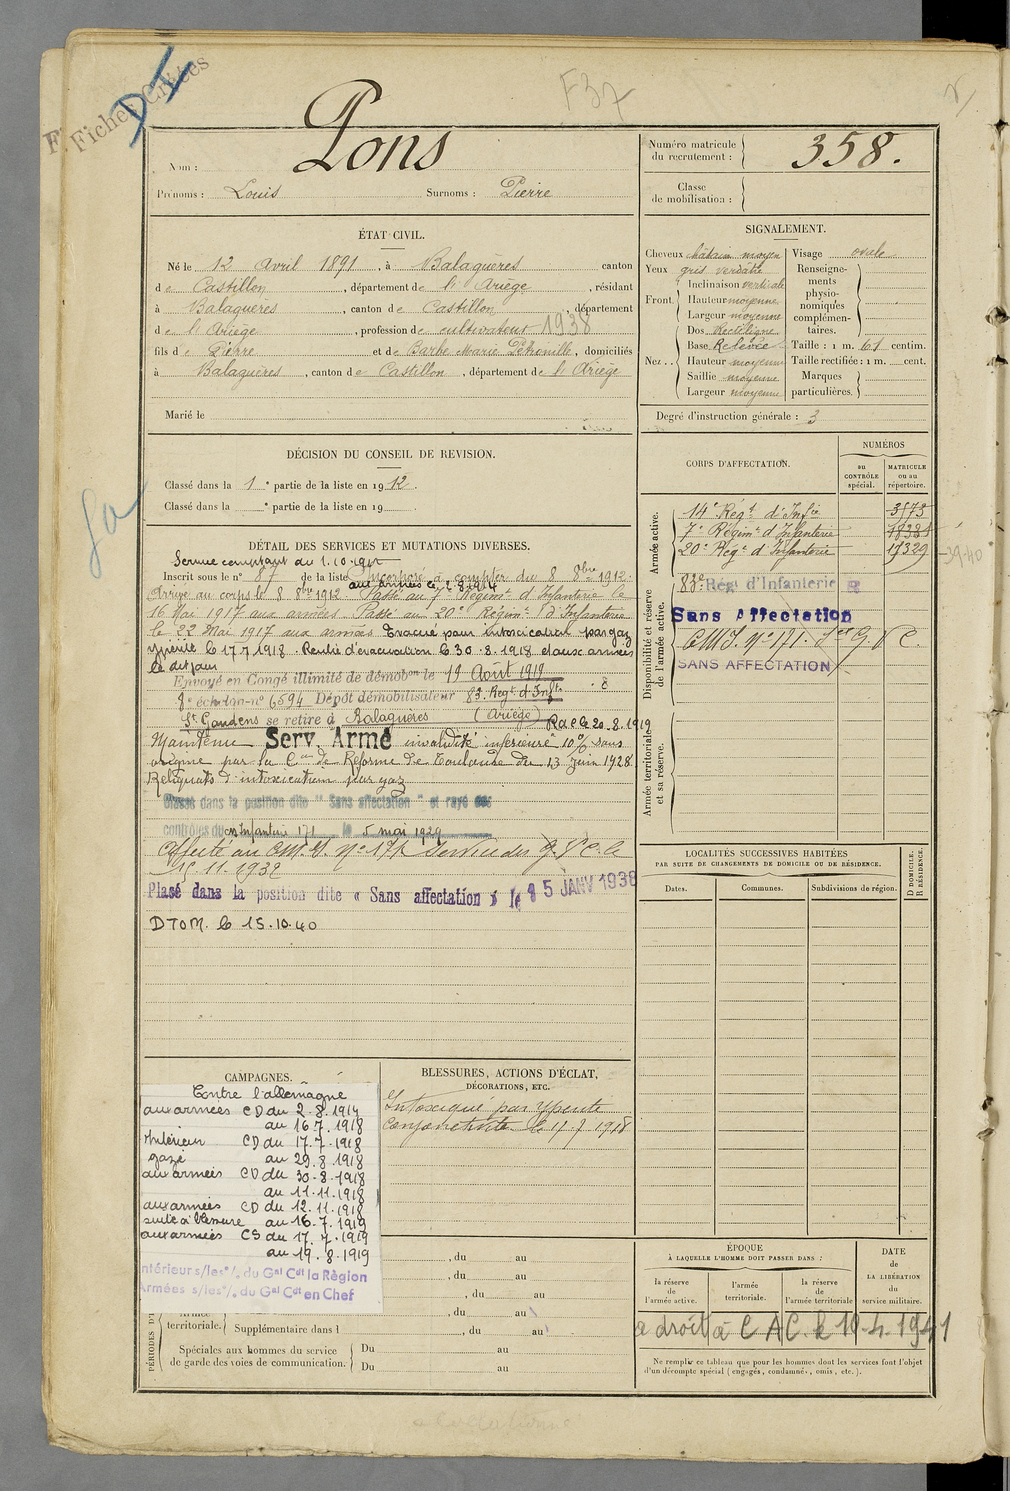 Fiches Créées
F37
Pons
Nom :
Prénoms : Louis Surnoms : Pierre
Numéro matricule
du recrutement :
358.
Classe
de mobilisation :
ÉTAT CIVIL.
Né le 12 Avril 1891, à Balaguères canton
de Castillon, département de l'Ariège, résidant
à Balaguères, canton de Castillon, département
de l'Ariège, profession de cultivateur 1938
fils de Pierre et de Barbe Marie Pétronille, domiciliés
à Balaguères, canton de Castillon, département de l'Ariège
Marié le
SIGNALEMENT.
Cheveux châtain moyen
Yeux gris verdâtre
Front.
Inclinaison verticale
Hauteur moyenne
Largeur moyenne
Nez..
Dos Rectiligne
Base Relevée
Hauteur moyenne
Saillie moyenne
Largeur moyenne
Visage ovale
Renseigne-
ments
physio-
nomiques
complémen-
taires.
Taille : 1 m. 61 centim.
Taille rectifiée : 1 m. cent.
Marques
particulières.
Degré d'instruction générale : 3
DÉCISION DU CONSEIL DE REVISION.
Classé dans la 1e partie de la liste en 1912.
Classé dans la e partie de la liste en 19
CORPS D'AFFECTATION.
NUMÉROS
au
CONTRÔLE
spécial.
MATRICULE
ou au
répertoire.
Armée active.
14e Régt d'Infie 3573
7e Régimt d'Infanterie
20e Régt d'Infanterie 17329
39-40
Disponibilité et réserve
de l'armée active.
83e Régt d'Infanterie
Sans Affectation
C.M.I. No 171. G. V C.
SANS AFFECTATION
Armée territoriale
et sa réserve.
DÉTAIL DES SERVICES ET MUTATIONS DIVERSES.
Service comptant du 1.10.1912
Inscrit sous le no 87 de la liste Incorporé à compter du 8 8bre 1912.
aux armées le 2.8.1914
Arrivé au corps le 8 8bre 1912 Passé au 7e Régimt d'Infanterie le
16 Mai 1917 aux armées. Passé au 20e Régimt d'Infanterie
le 22 Mai 1917 aux armées Evacué pour intoxication par gaz
ypérite le 17.7.1918. Rentré d'évacuation le 30.8.1918 et aux armées
le dit jour
Envoyé en Congé illimité de démobon le 19 Août 1919
8e échelon no 6594 Dépôt démobilisateur 83. Régt d'Infie
St Gaudens se retire à Balaguères (Ariège) RaCle 20.8.1919
Maintenu Serv. Armé invalidité inférieure 10% sans
origine par la Con de Réforme de Toulouse du 13 Juin 1928.
Reliquats d'intoxication par gaz
Classé dans la position dite "Sans affectation" et rayé des
contrôles du cm Infanterie 171 le 5 mai 1929
Affecté au C.M.I. No 171 Service des G.V.C. le
15.11.1932
Plasé dans la position dite « Sans affectation » le 15 JANV 1938
DTOM. le 15.10.40
LOCALITÉS SUCCESSIVES HABITÉES
PAR SUITE DE CHANGEMENTS DE DOMICILE OU DE RÉSIDENCE.
Dates.
Communes.
Subdivisions de région.
D DOMICILE.
R RÉSIDENCE.
CAMPAGNES.
Contre l'allemagne
aux armées CD du 2.8.1914
au 16.7.1918
Intérieur CD du 17.7.1918
gazé au 29.8.1918
aux armées CD du 30.8.1918
au 11.11.1918
aux armées CD du 12.11.1918
suite à blessure au 16.7.1919
aux armées CS du 17.7.1919
au 19.8.1919
ntérieur s/les °/. du Gal Cdt la Région
Armées s/les °/. du Gal Cdt en Chef
BLESSURES, ACTIONS D'ÉCLAT,
DÉCORATIONS, ETC.
Intoxiqué par Ypérite
Conjonctivite le 17.7.1918
, du au
, du au
, du au
PÉRIODES D'
territoriale.
, du au
Supplémentaire dans l , du au
Spéciales aux hommes du service
de garde des voies de communication.
Du au
Du au
ÉPOQUE
À LAQUELLE L'HOMME DOIT PASSER DANS :
la réserve
de
l'armée active.
l'armée
territoriale.
la réserve
de
l'armée territoriale
DATE
de
LA LIBÉRATION
du
service militaire.
a droit à C A C. le 10.4.1941
Ne remplir ce tableau que pour les hommes dont les services font l'objet
d'un décompte spécial (engagés, condamnés, omis, etc.).